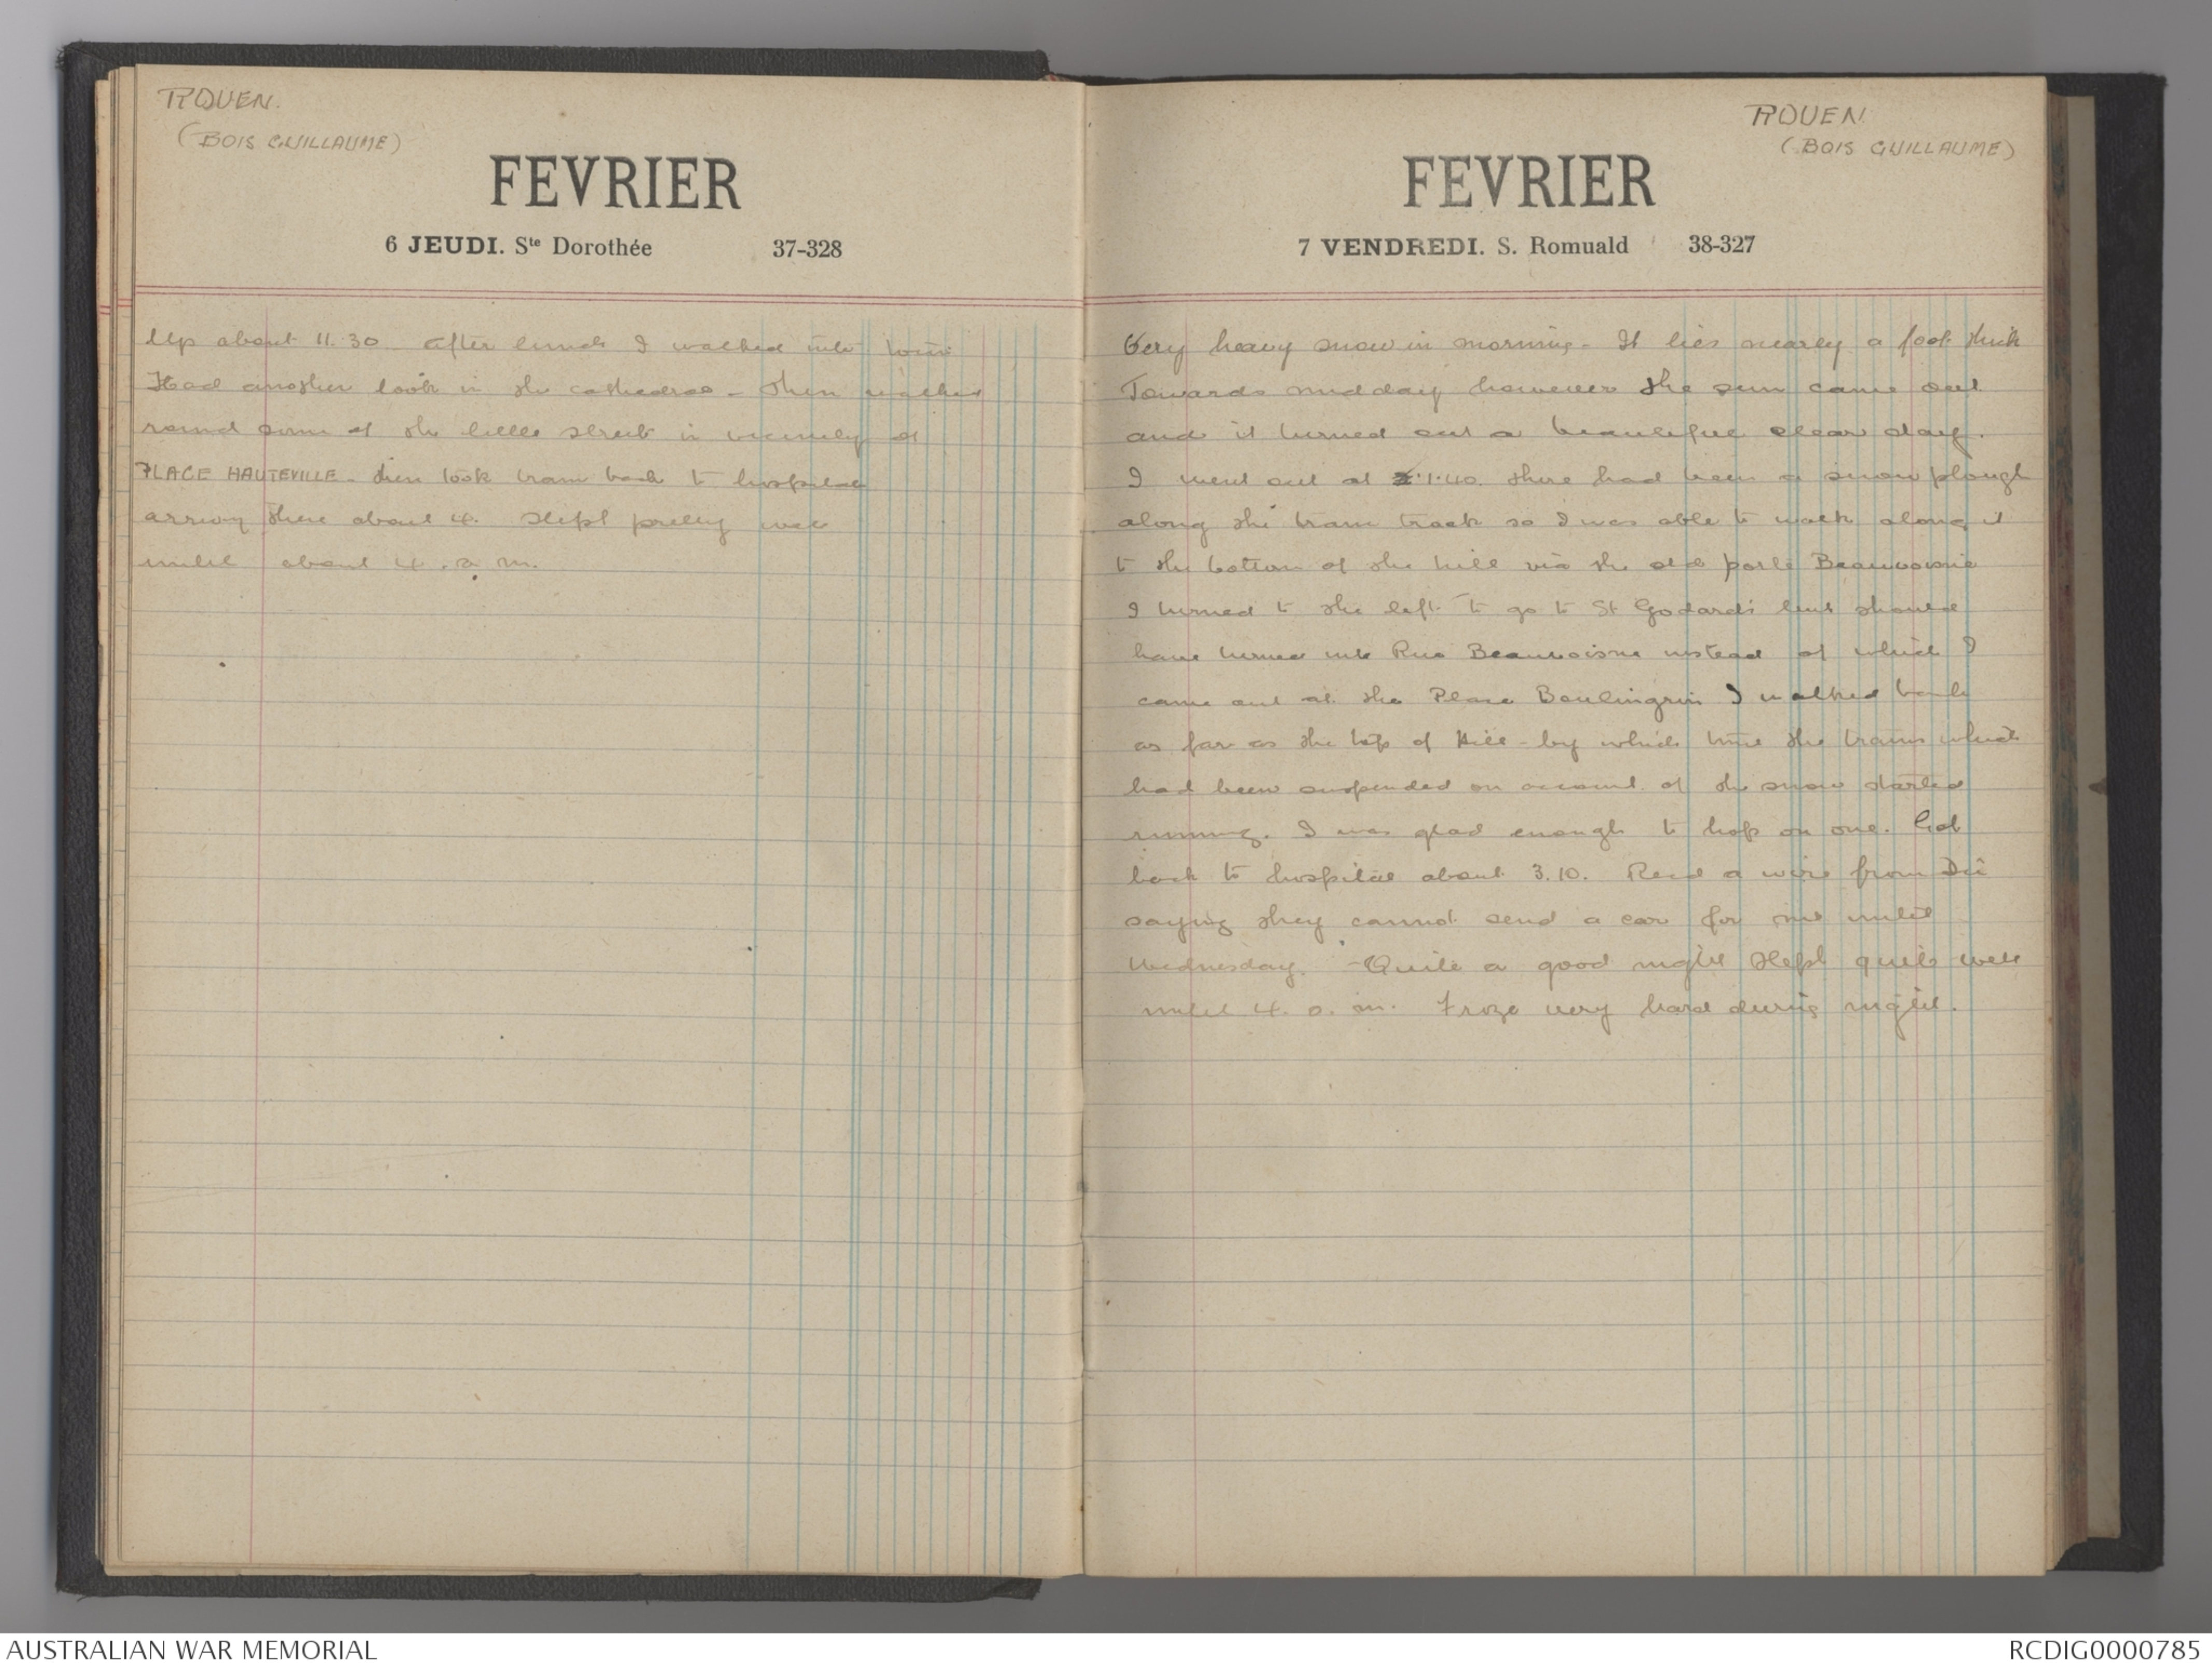 ROUEN.
(BOIS GUILLAUME)
FEVRIER
6 JEUDI. Ste Dorothée 37-328
Up about 11.30 After lunch I walked into town
Had another look in the cathedral - then walked
round some of the little streets in vicinity of
PLACE HAUTEVILLE - then took tram back to hospital
arriving there about 4. Slept pretty well
until about 4. a.m.
ROUEN
(BOIS GUILLAUME)
FEVRIER
7 VENDREDI. S. Romuald 38-327
Very heavy snow in morning - It lies nearly a foot thick
Towards midday however the sun came out
and it turned out a beautiful clear day.
I went out at 1.40. There had been a snow plough
along the tram track so I was able to walk along it
to the bottom of the hill via the old porte Beauvoisine
I turned to the left to go to St Godard's but should
have turned into Rue Beauvoisine instead of which I
came out at the Place Boulingrin I walked back
as far as the top of Hill - by which time the trams which
had been suspended on account of the snow started
running. I was glad enough to hop on one. Got
back to hospital about 3.10. Recd a wire from Div
saying they cannot send a car for me until
Wednesday. - Quite a good night Slept quite well
until 4. a. m. Froze very hard during night.
AUSTRALIAN WAR MEMORIAL
RCDIG0000785